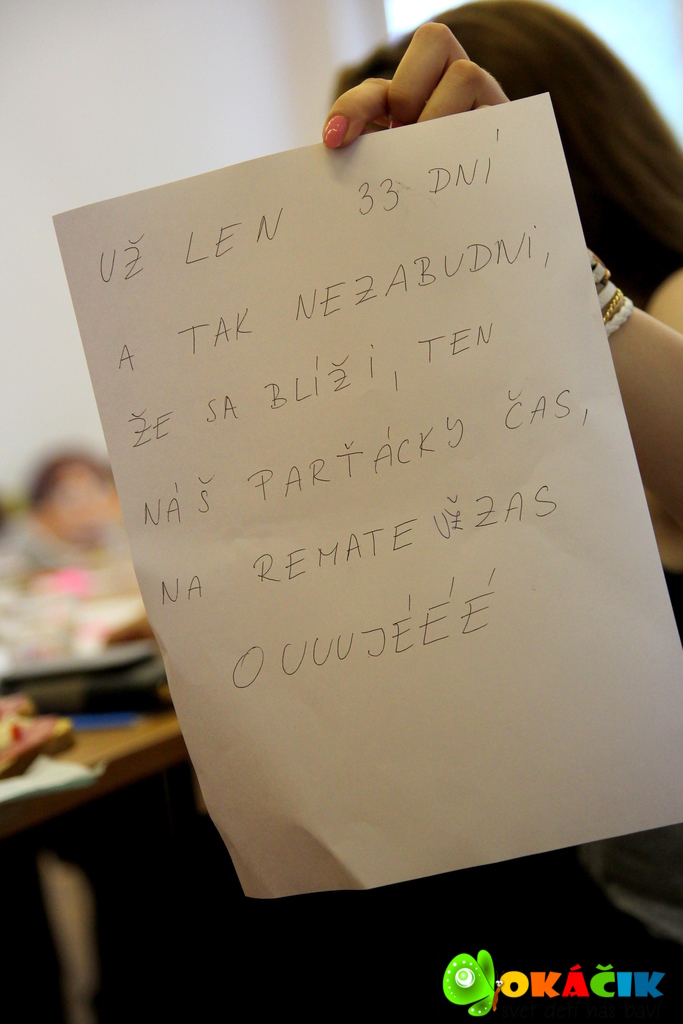 UŽ LEN 33 DNÍ
A TAK NEZABUDNI,
ŽE SA BLÍŽI, TEN
NÁŠ PARŤÁCKY ČAS,
NA REMATE UŽ ZAS
OUUUJÉÉÉ
OKÁČIK
svet detí nás baví